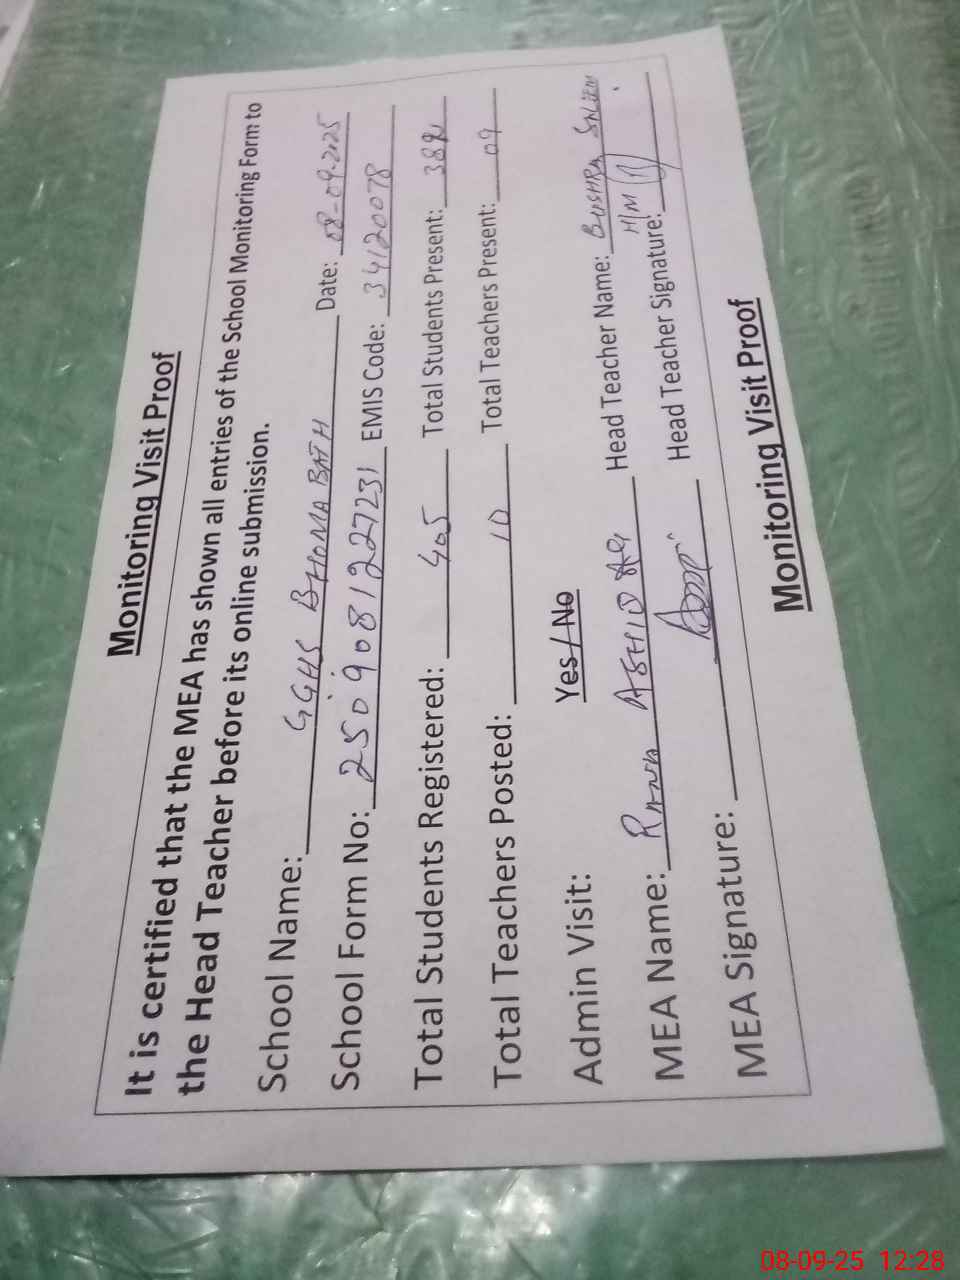 Monitoring Visit Proof
It is certified that the MEA has shown all entries of the School Monitoring Form to
the Head Teacher before its online submission.
School Name: GGHS BHOMA BATH Date: 08-09-2025
School Form No: 2509081227231 EMIS Code: 34120078
Total Students Registered: 405 Total Students Present:
Total Teachers Posted: 10 Total Teachers Present: 09
Admin Visit: Yes / No
MEA Name: Head Teacher Name: BUSHRA SALEEM
H/M
MEA Signature: Head Teacher Signature:
Monitoring Visit Proof
08-09-25 12:28